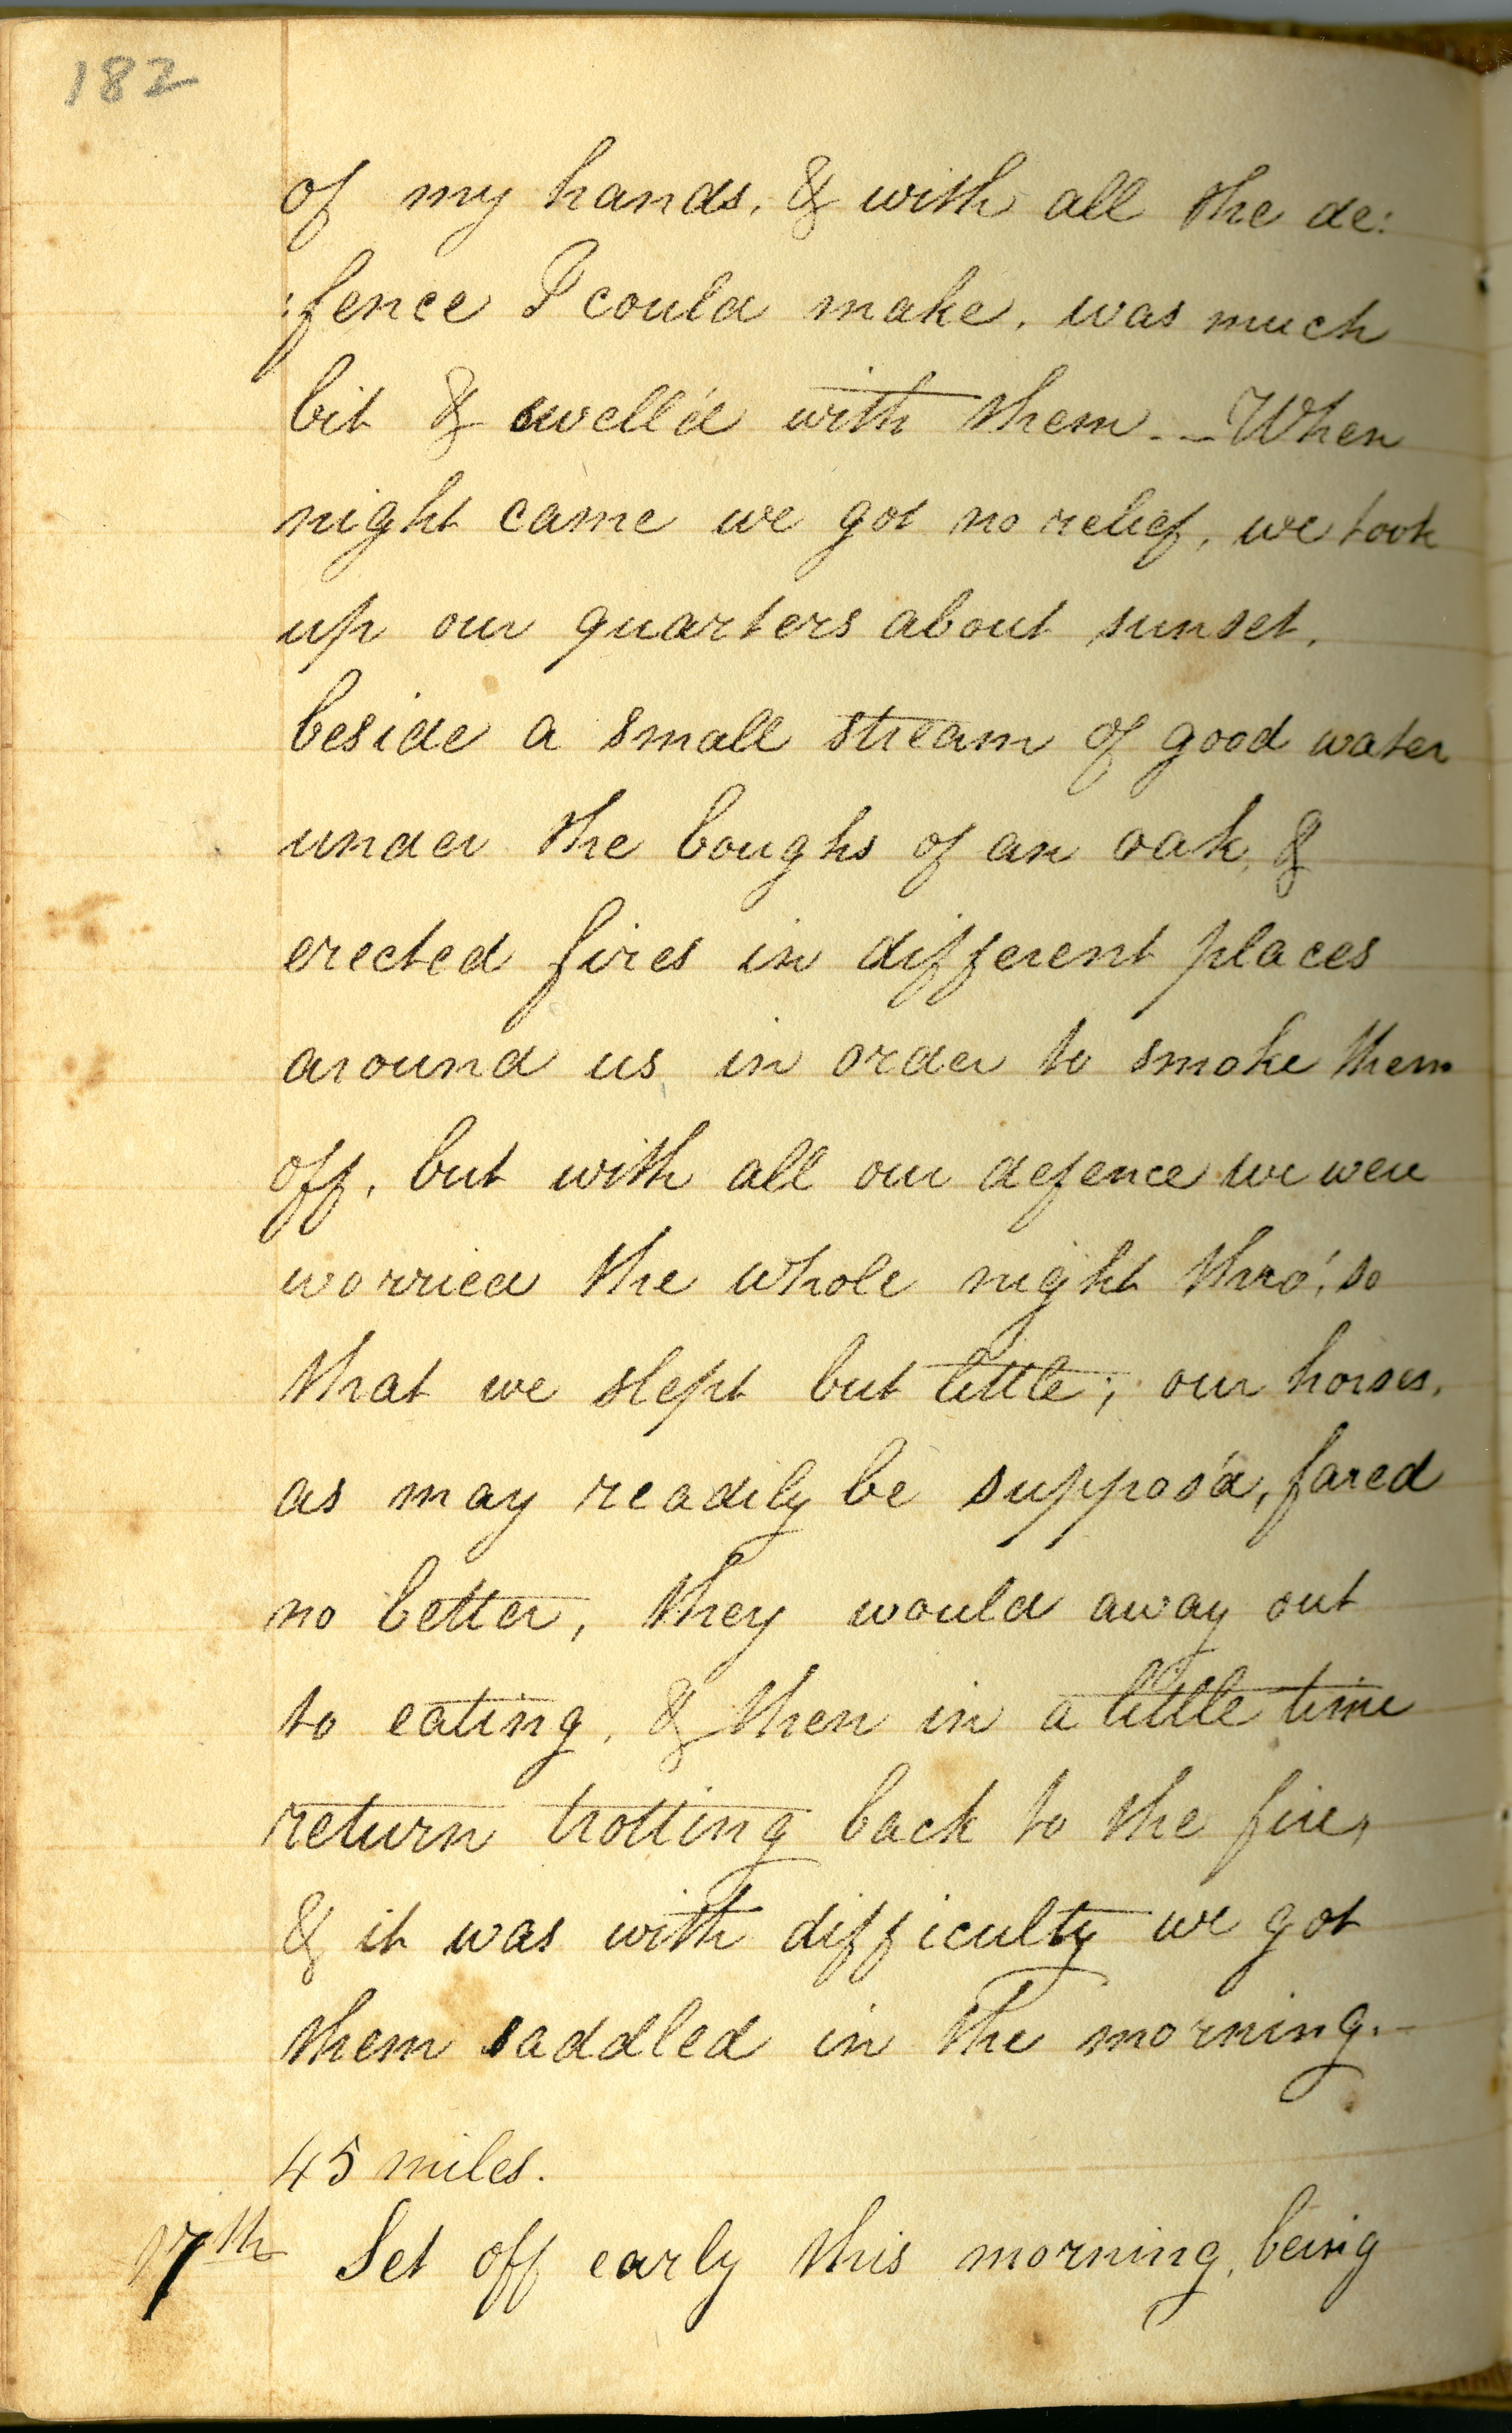 182
of my hands, & with all the de:
:fence I could make, was much
bit & swell'd with them. — When
night came we got no relief, we took
up our quarters about sunset,
beside a small stream of good water
under the boughs of an oak, &
erected fires in different places
around us in order to smoke them
off, but with all our defence we were
worried the whole night thro', so
that we slept but little; our horses,
as may readily be suppos'd, fared
no better, they would away out
to eating, & then in a little time
return trotting back to the fire,
& it was with difficulty we got
them saddled in the morning. —
45 miles.
17th Set off early this morning, being